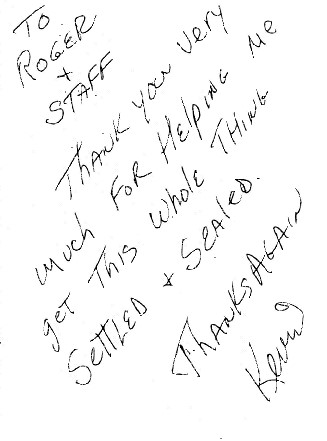 TO
ROGER
+
STAFF
THANK you very
much FOR Helping Me
get This whole THING
SettLED + SeaLed.
THANKS AGAIN
Kevin